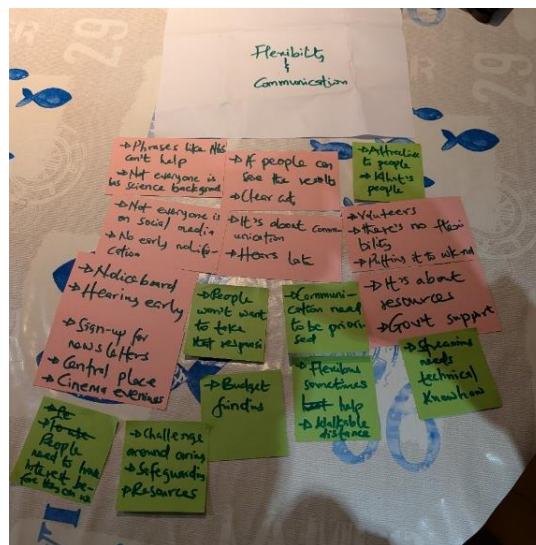 Flexibilty
&
Communication
→ Phrases like
can't help
→ Not everyone is
has science background
→ If people can
see the results
→ Clear cuts
→ Attractive
to people
→ What's
people
→ Not everyone is
on social media
→ No early notifi-
cation
→ It's about comm-
unication
→ Hears late
→ Volunteers
→ there's no flexi
bility
→ Putting it to wk-nd
→ Noticeboard
→ Hearing early
→ Sign-up for
news letters
→ Central place
→ Cinema evenings
→ People
won't want
to take
responsi
→ Communi-
cation need
to be priori-
sed
→ It's about
resources
→ Gov't support
→ Budget
finding
→ Flexibus
sometimes
help
→ Walkable
distance
→ Streaming
needs
technical
Knowhow
People
need to have
interest be-
fore they can
→ Challenge
around caring
→ Safeguarding
→ Resources
29